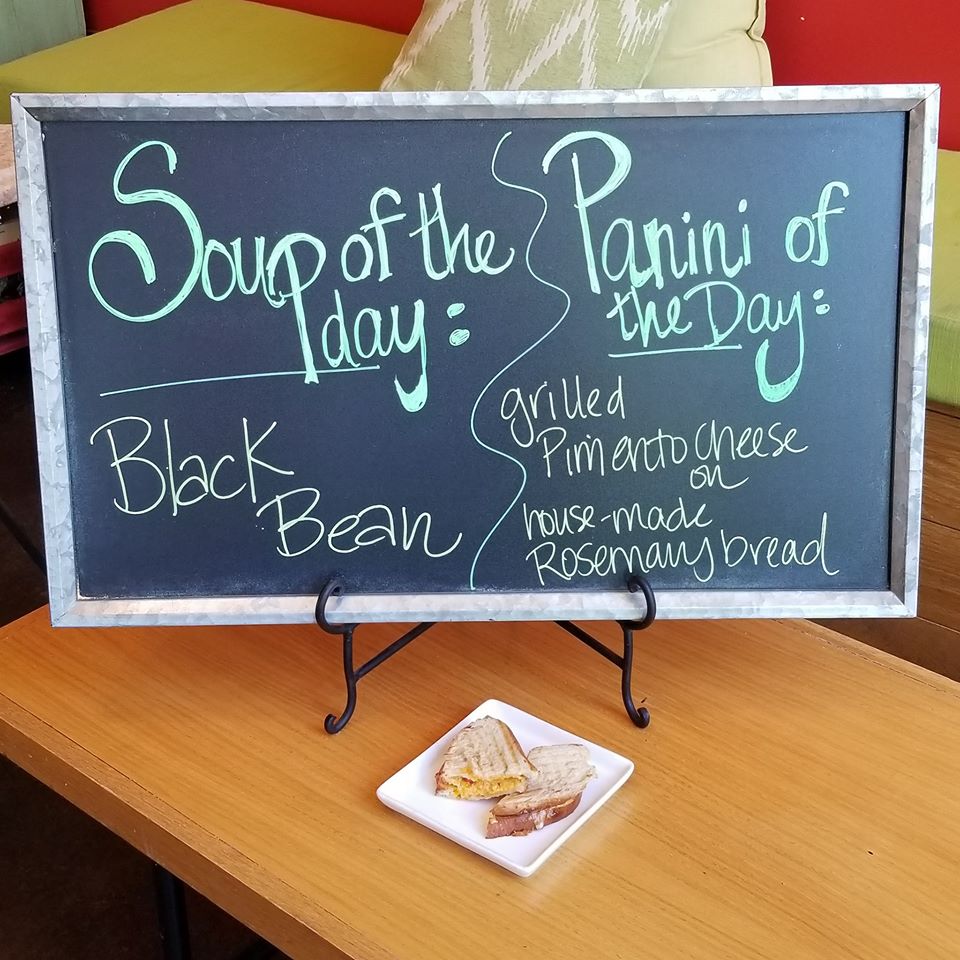 Soup of the
day:
Black
Bean
Panini of
the Day:
grilled
Pimento Cheese
on
house-made
Rosemary bread